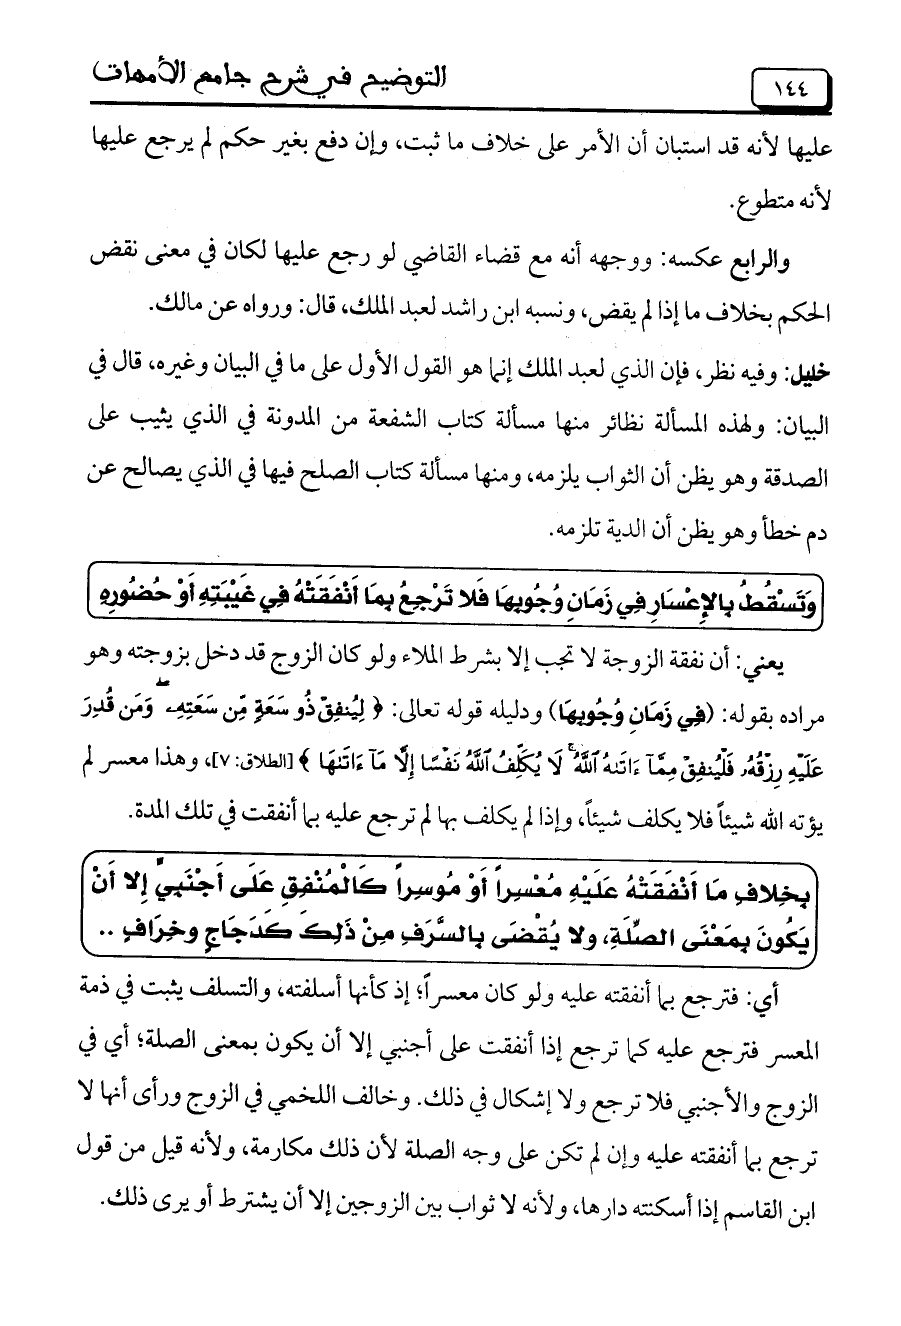 ١٤٤
التوضيح في شرح جامع الأمهات
عليها لأنه قد استبان أن الأمر على خلاف ما ثبت، وإن دفع بغير حكم لم يرجع عليها
لأنه متطوع.
والرابع عكسه: ووجهه أنه مع قضاء القاضي لو رجع عليها لكان في معنى نقض
الحكم بخلاف ما إذا لم يقض، ونسبه ابن راشد لعبد الملك، قال: ورواه عن مالك.
خليل: وفيه نظر، فإن الذي لعبد الملك إنما هو القول الأول على ما في البيان وغيره، قال في
البيان: ولهذه المسألة نظائر منها مسألة كتاب الشفعة من المدونة في الذي يثيب على
الصدقة وهو يظن أن الثواب يلزمه، ومنها مسألة كتاب الصلح فيها في الذي يصالح عن
دم خطأ وهو يظن أن الدية تلزمه.
وَتَسْقُطُ بِالإِعْسَارِ فِي زَمَانِ وُجُوبِهَا فَلا تَرْجِعُ بِمَا أَنْفَقَتْهُ فِي غَيْبَتِهِ أَوْ حُضُورِهِ
يعني: أن نفقة الزوجة لا تجب إلا بشرط الملاء ولو كان الزوج قد دخل بزوجته وهو
مراده بقوله: (فِي زَمَانِ وُجُوبِهَا) ودليله قوله تعالى: ﴿ لِيُنفِقْ ذُو سَعَةٍ مِّن سَعَتِهِۦ ۖ وَمَن قُدِرَ
عَلَيْهِ رِزْقُهُۥ فَلْيُنفِقْ مِمَّآ ءَاتَىٰهُ ٱللَّهُ ۚ لَا يُكَلِّفُ ٱللَّهُ نَفْسًا إِلَّا مَآ ءَاتَىٰهَا ﴾ [الطلاق: ٧]، وهذا معسر لم
يؤته الله شيئاً فلا يكلف شيئاً، وإذا لم يكلف بها لم ترجع عليه بما أنفقت في تلك المدة.
بِخِلافِ مَا أَنْفَقَتْهُ عَلَيْهِ مُعْسِراً أَوْ مُوسِراً كَالْمُنْفِقِ عَلَى أَجْنَبِيٍّ إِلا أَنْ
يَكُونَ بِمَعْنَى الصِّلَةِ، وَلا يُقْضَى بِالسَّرَفِ مِنْ ذَلِكَ كَدَجَاجٍ وخِرَافٍ ..
أي: فترجع بما أنفقته عليه ولو كان معسراً؛ إذ كأنها أسلفته، والتسلف يثبت في ذمة
المعسر فترجع عليه كما ترجع إذا أنفقت على أجنبي إلا أن يكون بمعنى الصلة؛ أي في
الزوج والأجنبي فلا ترجع ولا إشكال في ذلك. وخالف اللخمي في الزوج ورأى أنها لا
ترجع بما أنفقته عليه وإن لم تكن على وجه الصلة لأن ذلك مكارمة، ولأنه قيل من قول
ابن القاسم إذا أسكنته دارها، ولأنه لا ثواب بين الزوجين إلا أن يشترط أو يرى ذلك.